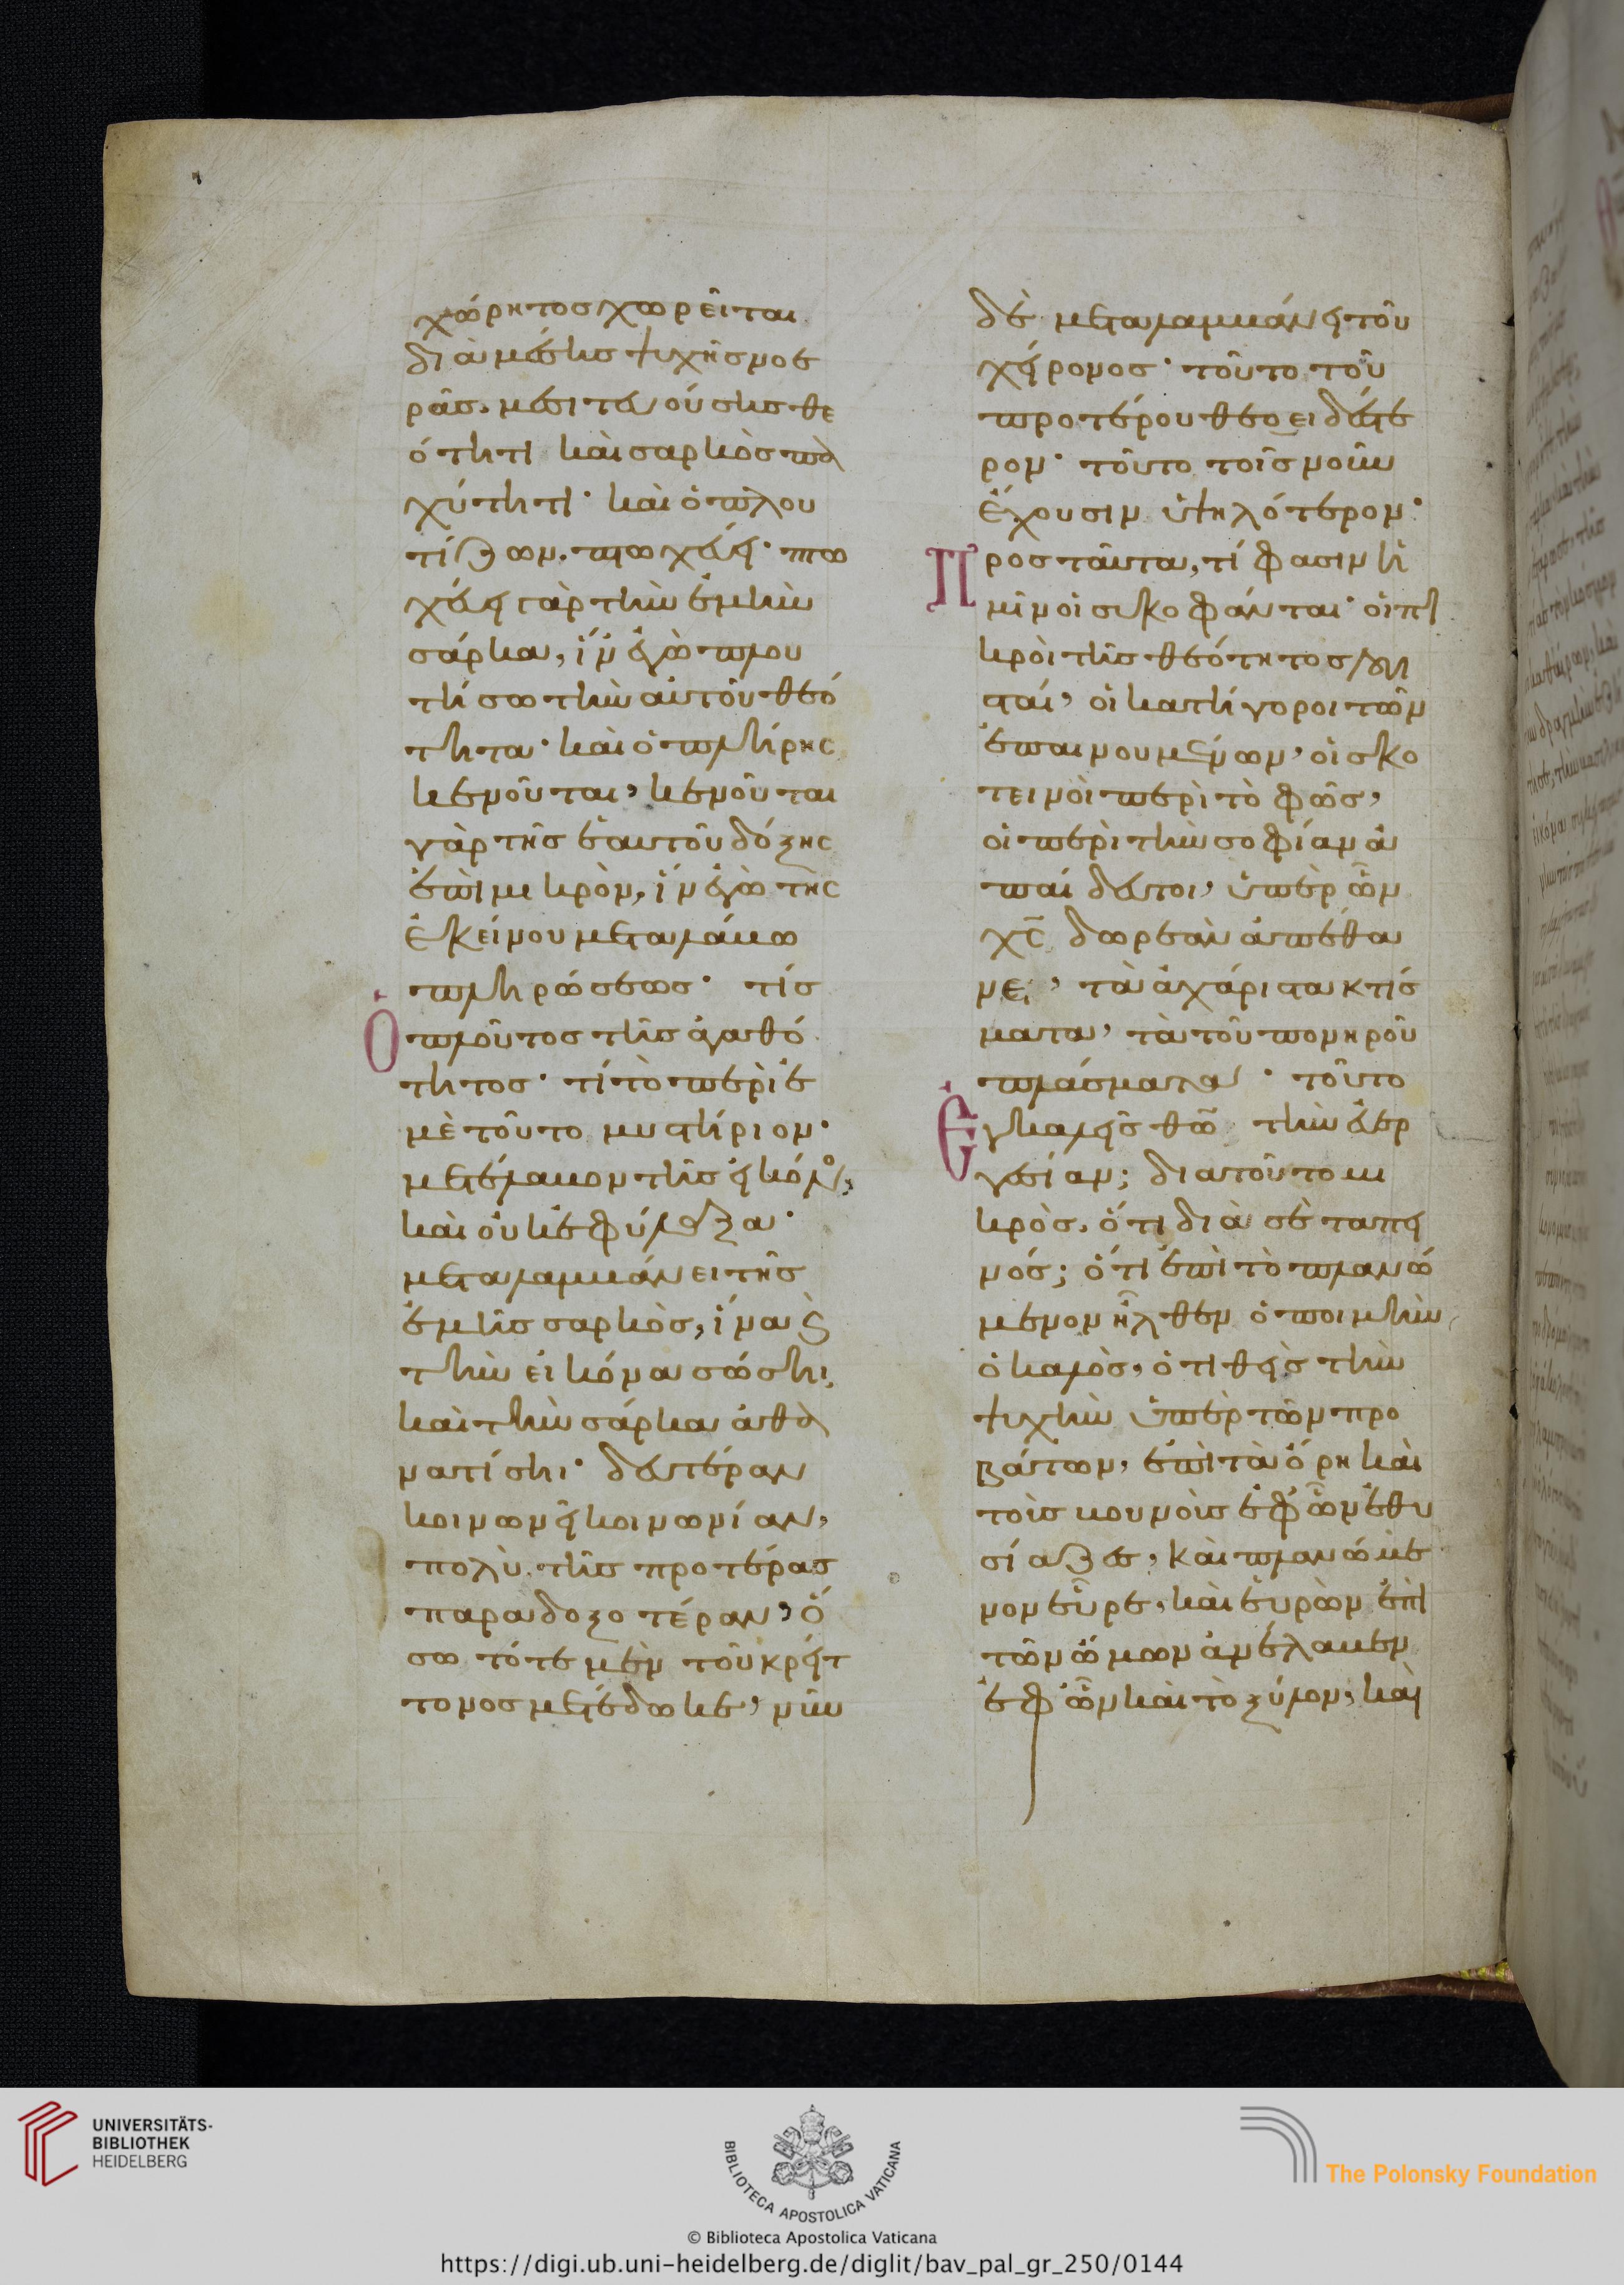 χώρητος χωρεῖται
διὰ μέσης ψυχῆς νοε
ρᾶς. μεσιτευούσης θε
ότητι καὶ σαρκὸς πα
χύτητι· καὶ ὁ πλου
τίζων. πτωχεύει· πτω
χεύει γὰρ τὴν ἐμὴν
σάρκα, ἵν' ἐγὼ πλου
τήσω τὴν αὐτοῦ θεό
τητα· καὶ ὁ πλήρης
κενοῦται, κενοῦται
γὰρ τῆς ἑαυτοῦ δόξης
ἐπὶ μικρὸν, ἵν' ἐγὼ τῆς
ἐκείνου μεταλάβω
πληρώσεως· τίς
Ὁ πλοῦτος τῆς ἀγαθό
τητος· τί τὸ περὶ ἐ
μὲ τοῦτο μυστήριον·
μετέλαβον τῆς εἰκόνος,
καὶ οὐκ ἐφύλαξα·
μεταλαμβάνει τῆς
ἐμῆς σαρκὸς, ἵνα καὶ
τὴν εἰκόνα σώσηι,
καὶ τὴν σάρκα ἀθα
νατίσηι· δευτέραν
κοινωνεῖ κοινωνίαν,
πολὺ τῆς προτέρας
παραδοξοτέραν, ὅ
σω τότε μὲν τοῦ κρείτ
τονος μετέδωκε, νῦν
δὲ μεταλαμβάνει τοῦ
χείρονος· τοῦτο τοῦ
προτέρου θεοειδέστε
ρον· τοῦτο τοῖς νοῦν
ἔχουσιν ὑψηλότερον·
Προς ταῦτα, τί φασιν ἡ
μῖν οἱ συκοφάνται· οἱ πι
κροὶ τῆς θεότητος λογι
σταί, οἱ κατήγοροι τῶν
ἐπαινουμένων, οἱ σκο
τεινοὶ περὶ τὸ φῶς,
οἱ περὶ τὴν σοφίαν ἀ
παίδευτοι, ὑπὲρ ὧν
χς δωρεὰν ἀπέθα
νε, τὰ ἀχάριστα κτίσ
ματα, τὰ τοῦ πονηροῦ
πλάσματα· τοῦτο
Ἐγκαλεῖς θῶ τὴν εὐερ
γεσίαν; διατοῦτο μι
κρὸς, ὅτι διὰ σὲ ταπει
νός; ὅτι ἐπὶ τὸ πλανώ
μενον ἦλθεν ὁ ποιμὴν
ὁ καλὸς, ὁ τιθεὶς τὴν
ψυχὴν ὑπὲρ τῶν προ
βάτων, ἐπὶ τὰ ὄρη καὶ
τοὺς βουνοὺς ἐφ' ὧν ἐθυ
σίαζες, καὶ πλανώμε
νον εὗρε, καὶ εὑρὼν ἐπὶ
τῶν ὤμων ἀνέλαβεν
ἐφ' ὧν καὶ τὸ ξύλον, καὶ
UNIVERSITÄTS-
BIBLIOTHEK
HEIDELBERG
BIBLIOTECA APOSTOLICA VATICANA
The Polonsky Foundation
© Biblioteca Apostolica Vaticana
https://digi.ub.uni-heidelberg.de/diglit/bav_pal_gr_250/0144